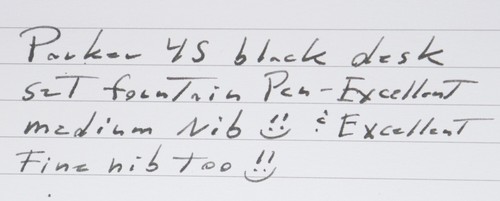 Parker 45 black desk
set fountain Pen-Excellent
medium Nib !! & Excellent
Fine nib too !!